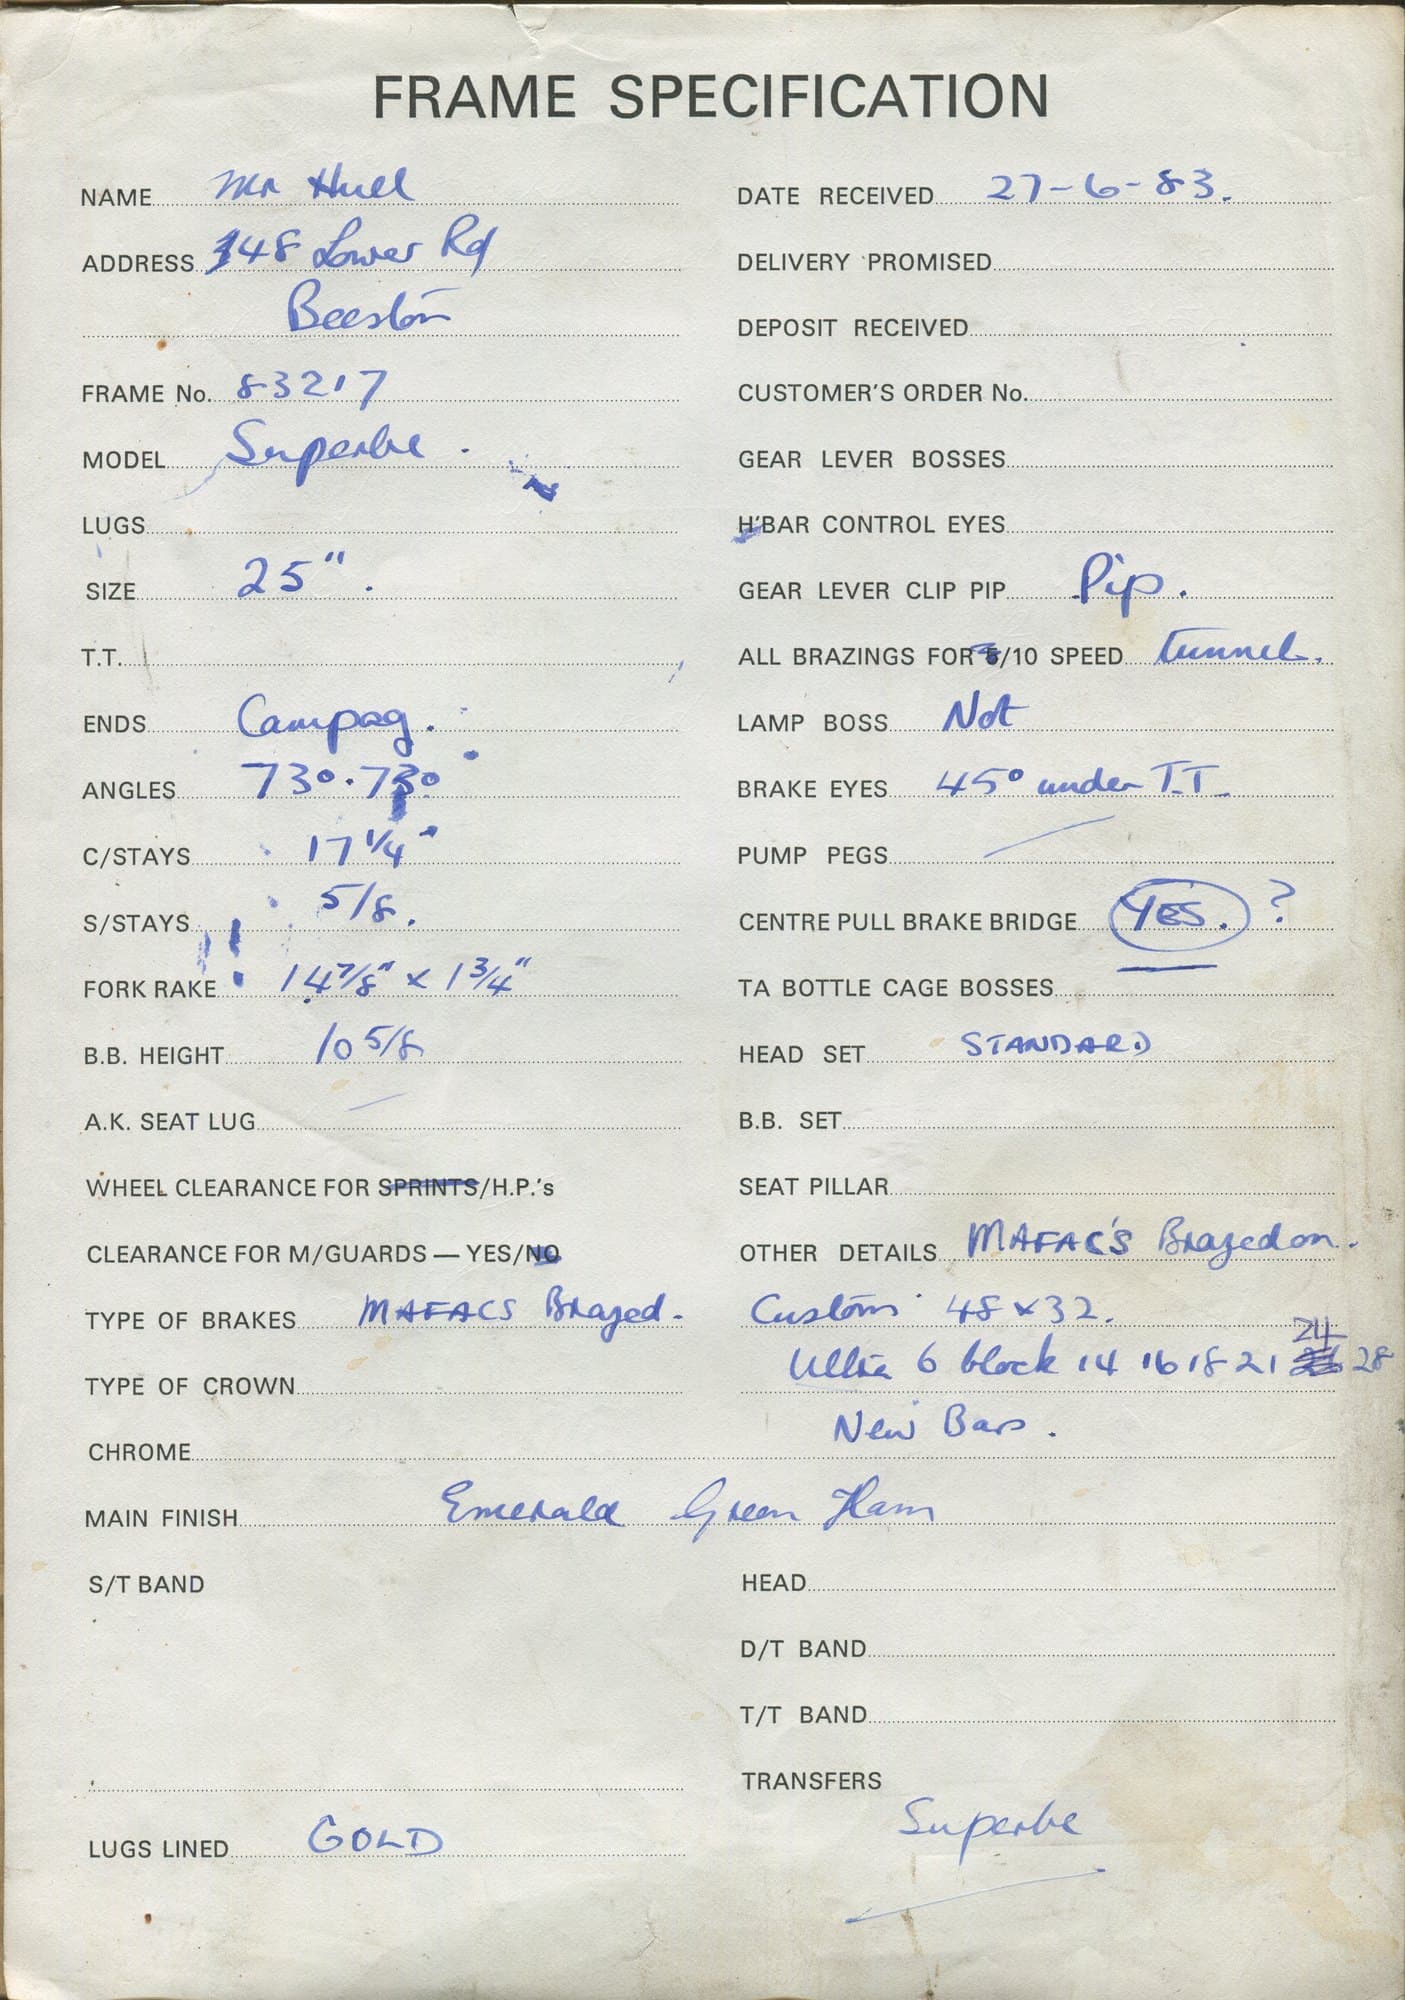 FRAME SPECIFICATION
NAME Mr Hull
ADDRESS 148 Lower Rd
Beeston
FRAME No. 83217
MODEL Superbe.
LUGS
SIZE 25".
T.T.
ENDS Campag.
ANGLES 73°. 73°
C/STAYS 17 1/4"
S/STAYS 5/8.
FORK RAKE 14 7/8" x 1 3/4"
B.B. HEIGHT 10 5/8
A.K. SEAT LUG
WHEEL CLEARANCE FOR SPRINTS/H.P.'s
CLEARANCE FOR M/GUARDS — YES/NO
TYPE OF BRAKES MAFACS Brazed.
TYPE OF CROWN
CHROME
MAIN FINISH Emerald Green Flam
S/T BAND
LUGS LINED GOLD
DATE RECEIVED 27-6-83.
DELIVERY PROMISED
DEPOSIT RECEIVED
CUSTOMER'S ORDER No.
GEAR LEVER BOSSES
H'BAR CONTROL EYES
GEAR LEVER CLIP PIP Pip.
ALL BRAZINGS FOR 5/10 SPEED tunnel.
LAMP BOSS Not
BRAKE EYES 45° under T.T.
PUMP PEGS
CENTRE PULL BRAKE BRIDGE YES. ?
TA BOTTLE CAGE BOSSES
HEAD SET STANDARD
B.B. SET
SEAT PILLAR
OTHER DETAILS MAFAC'S Brazed on.
Custom 48 x 32.
Ultra 6 block 14 16 18 21 24 28
New Bars.
HEAD
D/T BAND
T/T BAND
TRANSFERS
Superbe